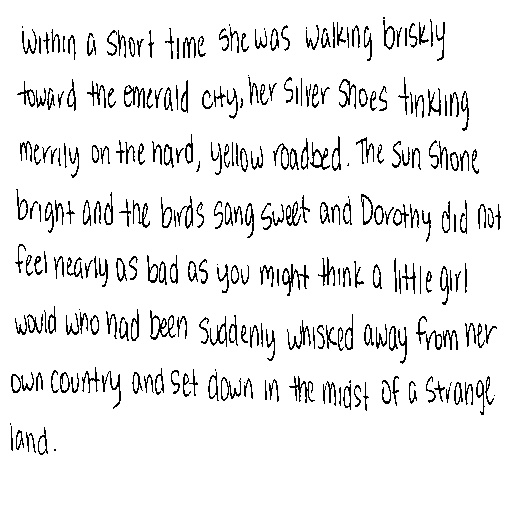 within a short time she was walking briskly
toward the emerald city, her silver shoes tinkling
merrily on the hard, yellow roadbed. The sun shone
bright and the birds sang sweet and Dorothy did not
feel nearly as bad as you might think a little girl
would who had been suddenly whisked away from her
own country and set down in the midst of a strange
land.